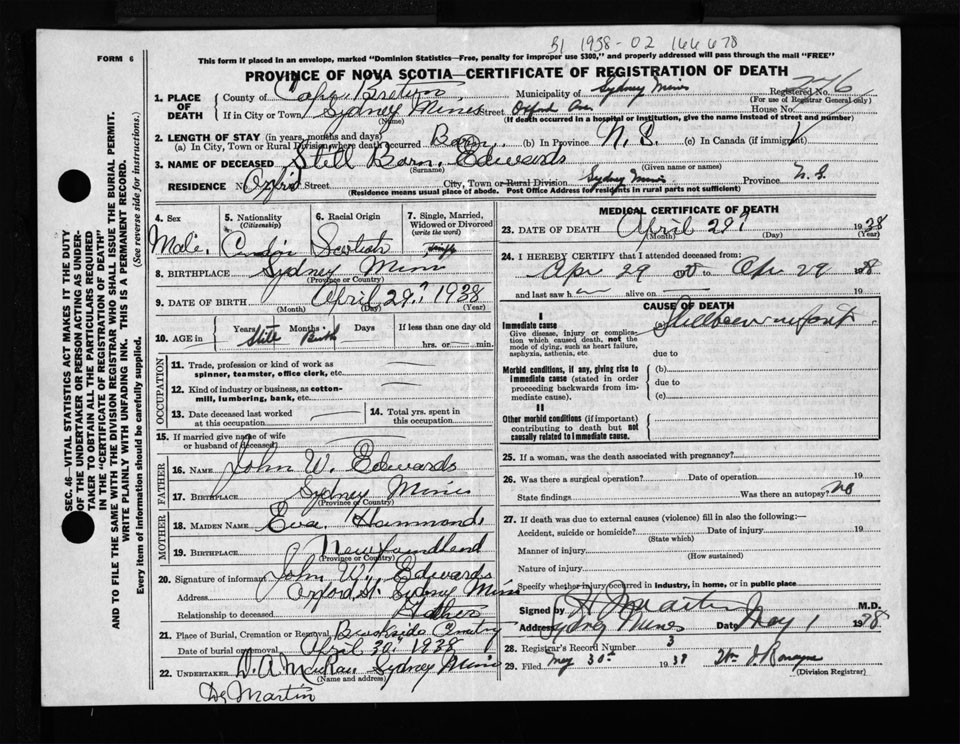 31 1938-02 166678
FORM 6
This form if placed in an envelope, marked "Dominion Statistics—Free, penalty for improper use $300," and properly addressed will pass through the mail "FREE"
PROVINCE OF NOVA SCOTIA—CERTIFICATE OF REGISTRATION OF DEATH
1. PLACE OF DEATH
County of Cape Breton Municipality of Sydney Mines Registered No. 276
(For use of Registrar General only)
If in City or Town Sydney Mines Street Oxford House No.
(Name) (If death occurred in a hospital or institution, give the name instead of street and number)
2. LENGTH OF STAY (in years, months and days)
(a) In City, Town or Rural Division where death occurred Born (b) In Province N.S. (c) In Canada (if immigrant)
3. NAME OF DECEASED Still Born. Edwards
(Surname) (Given name or names)
RESIDENCE No. Oxford Street City, Town or Rural Division Sydney Mines Province N.S.
(Residence means usual place of abode. Post Office Address for residents in rural parts not sufficient)
4. Sex Male
5. Nationality (Citizenship)
6. Racial Origin
7. Single, Married, Widowed or Divorced (write the word) Single
8. BIRTHPLACE Sydney Mines
(Province or Country)
9. DATE OF BIRTH April 29" 1938
(Month) (Day) (Year)
10. AGE in Years Months Days If less than one day old
Birth hrs. or min.
OCCUPATION
11. Trade, profession or kind of work as spinner, teamster, office clerk, etc.
12. Kind of industry or business, as cotton-mill, lumbering, bank, etc.
13. Date deceased last worked at this occupation
14. Total yrs. spent in this occupation
15. If married give name of wife or husband of deceased
FATHER
16. NAME John W. Edwards
17. BIRTHPLACE Sydney Mines
(Province or Country)
MOTHER
18. MAIDEN NAME Eva Hammond
19. BIRTHPLACE Newfoundland
(Province or Country)
20. Signature of informant John W. Edwards
Address Oxford St. Sydney Mines
Relationship to deceased Father
21. Place of Burial, Cremation or Removal Brookside Cemetry
Date of burial or removal April 30" 1938
22. UNDERTAKER Sydney Mines
(Name and address)
Dr Martin
MEDICAL CERTIFICATE OF DEATH
23. DATE OF DEATH April 29" 1938
(Month) (Day) (Year)
24. I HEREBY CERTIFY that I attended deceased from
Apr 29 to Apr 29 1938
and last saw h alive on 19
CAUSE OF DEATH
I
Immediate cause
Give disease, injury or complication which caused death, not the mode of dying, such as heart failure, asphyxia, asthenia, etc
Stillborn infant
due to
Morbid conditions, if any, giving rise to immediate cause (stated in order proceeding backwards from immediate cause).
(b)
due to
(c)
II
Other morbid conditions (if important) contributing to death but not causally related to immediate cause.
25. If a woman, was the death associated with pregnancy?
26. Was there a surgical operation? Date of operation 19
State findings Was there an autopsy? no
27. If death due to external causes (violence) fill in also the following:—
Accident, suicide or homicide? Date of injury 19
(State which)
Manner of injury
(How sustained)
Nature of injury
Specify whether injury occurred in industry, in home, or in public place
Signed by H. Martin M.D.
Address Sydney Mines Date May 1 1938
28. Registrar's Record Number 3
29. Filed May 30th 1938
(Division Registrar)
SEC. 46—VITAL STATISTICS ACT MAKES IT THE DUTY OF THE UNDERTAKER OR PERSON ACTING AS UNDERTAKER TO OBTAIN ALL THE PARTICULARS REQUIRED IN THE "CERTIFICATE OF REGISTRATION OF DEATH" AND TO FILE THE SAME WITH THE DIVISION REGISTRAR WHO SHALL ISSUE THE BURIAL PERMIT.
WRITE PLAINLY WITH UNFADING INK. THIS IS A PERMANENT RECORD.
Every item of information should be carefully supplied. (See reverse side for instructions.)